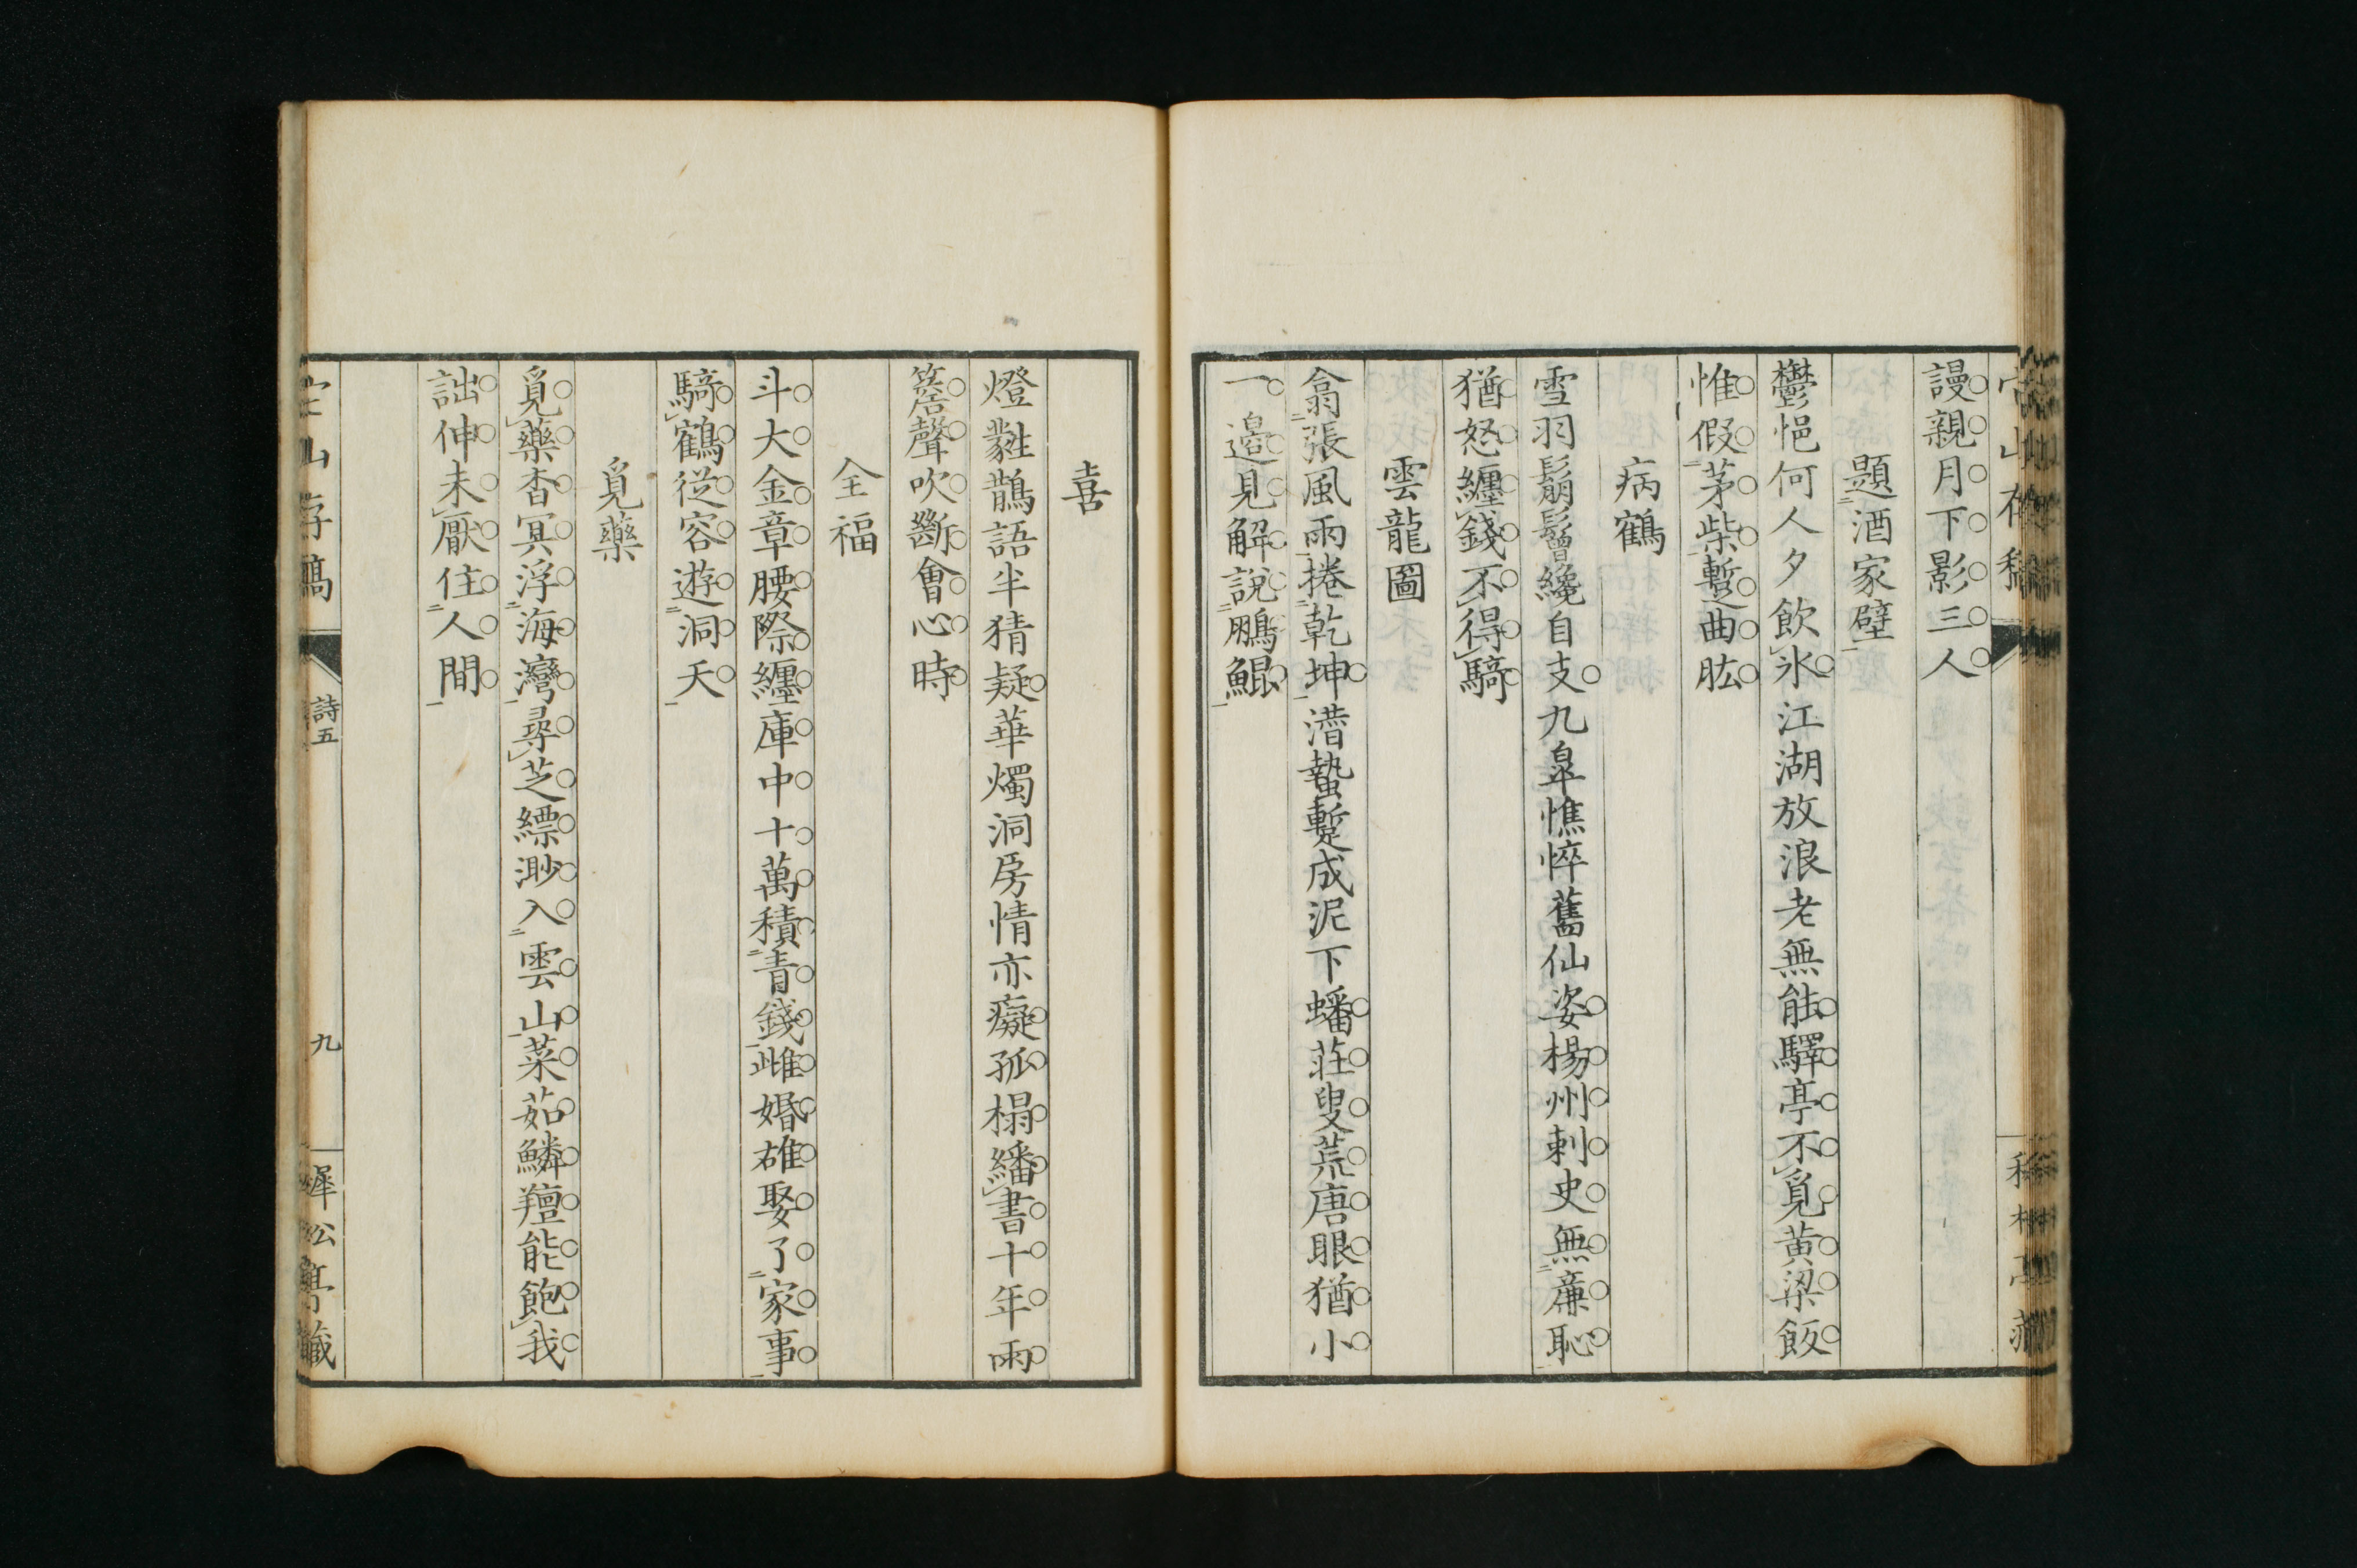 謾親月下影三人
題酒家壁
鬱悒何人夕飲氷江湖放浪老無能驛亭不覓黄粱飯
惟假茅柴暫曲肱
病鶴
雪羽鬅鬙纔自支九皐憔悴舊仙姿楊州刺史無廉恥
猶怒纏錢不得騎
雲龍圖
翕張風雨捲乾坤潛蟄暫成泥下蟠莊叟荒唐眼猶小
一邉見解說鵬鯤
喜
燈蕤鵲語半猜疑華燭洞房情亦癡孤榻繙書十年雨
簷聲吹斷會心時
全福
斗大金章腰際纏庫中十萬積青錢雌婚雄娶了家事
騎鶴從容遊洞天
覓藥
覓藥杳冥浮海灣尋芝縹渺入雲山菜茹鱗羶能飽我
詘伸未厭住人間
山存稿
詩五
九
犀松亭藏